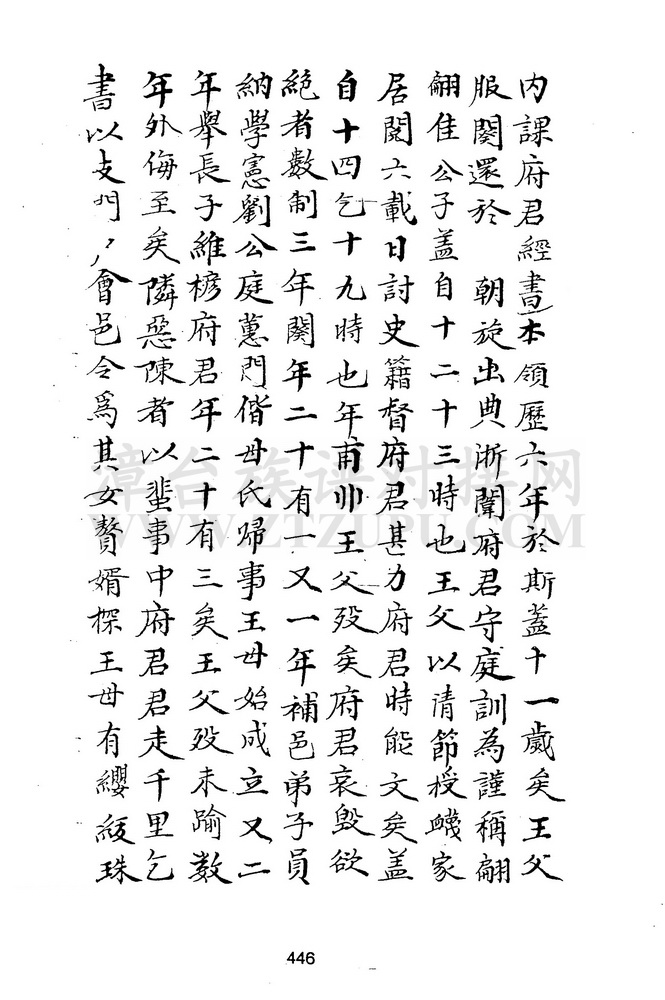 内課府君經書本領歷六年於斯蓋十一歲矣王父
服闋還於　朝旋出典浙闈府君守庭訓為謹稱翩
翩佳公子盖自十二十三時也王父以清節授衊家
居閱六載日討史籍督府君甚力府君時能文矣盖
自十四乞十九時也年甫帅王父歿矣府君哀毁欲
絕者數制三年闋年二十有一又一年補邑弟子員
納學憲劉公庭蕙門偕母氏歸事王母始成立又二
年舉長子維榜府君年二十有三矣王父歿未踰数
年外侮至矣隣惡陳者以蜚事中府君君走千里乞
書以支門丷會邑令爲其女贅婿探王母有纓綴珠
漳台族谱对接网
WWW.ZTZUPU.COM
446